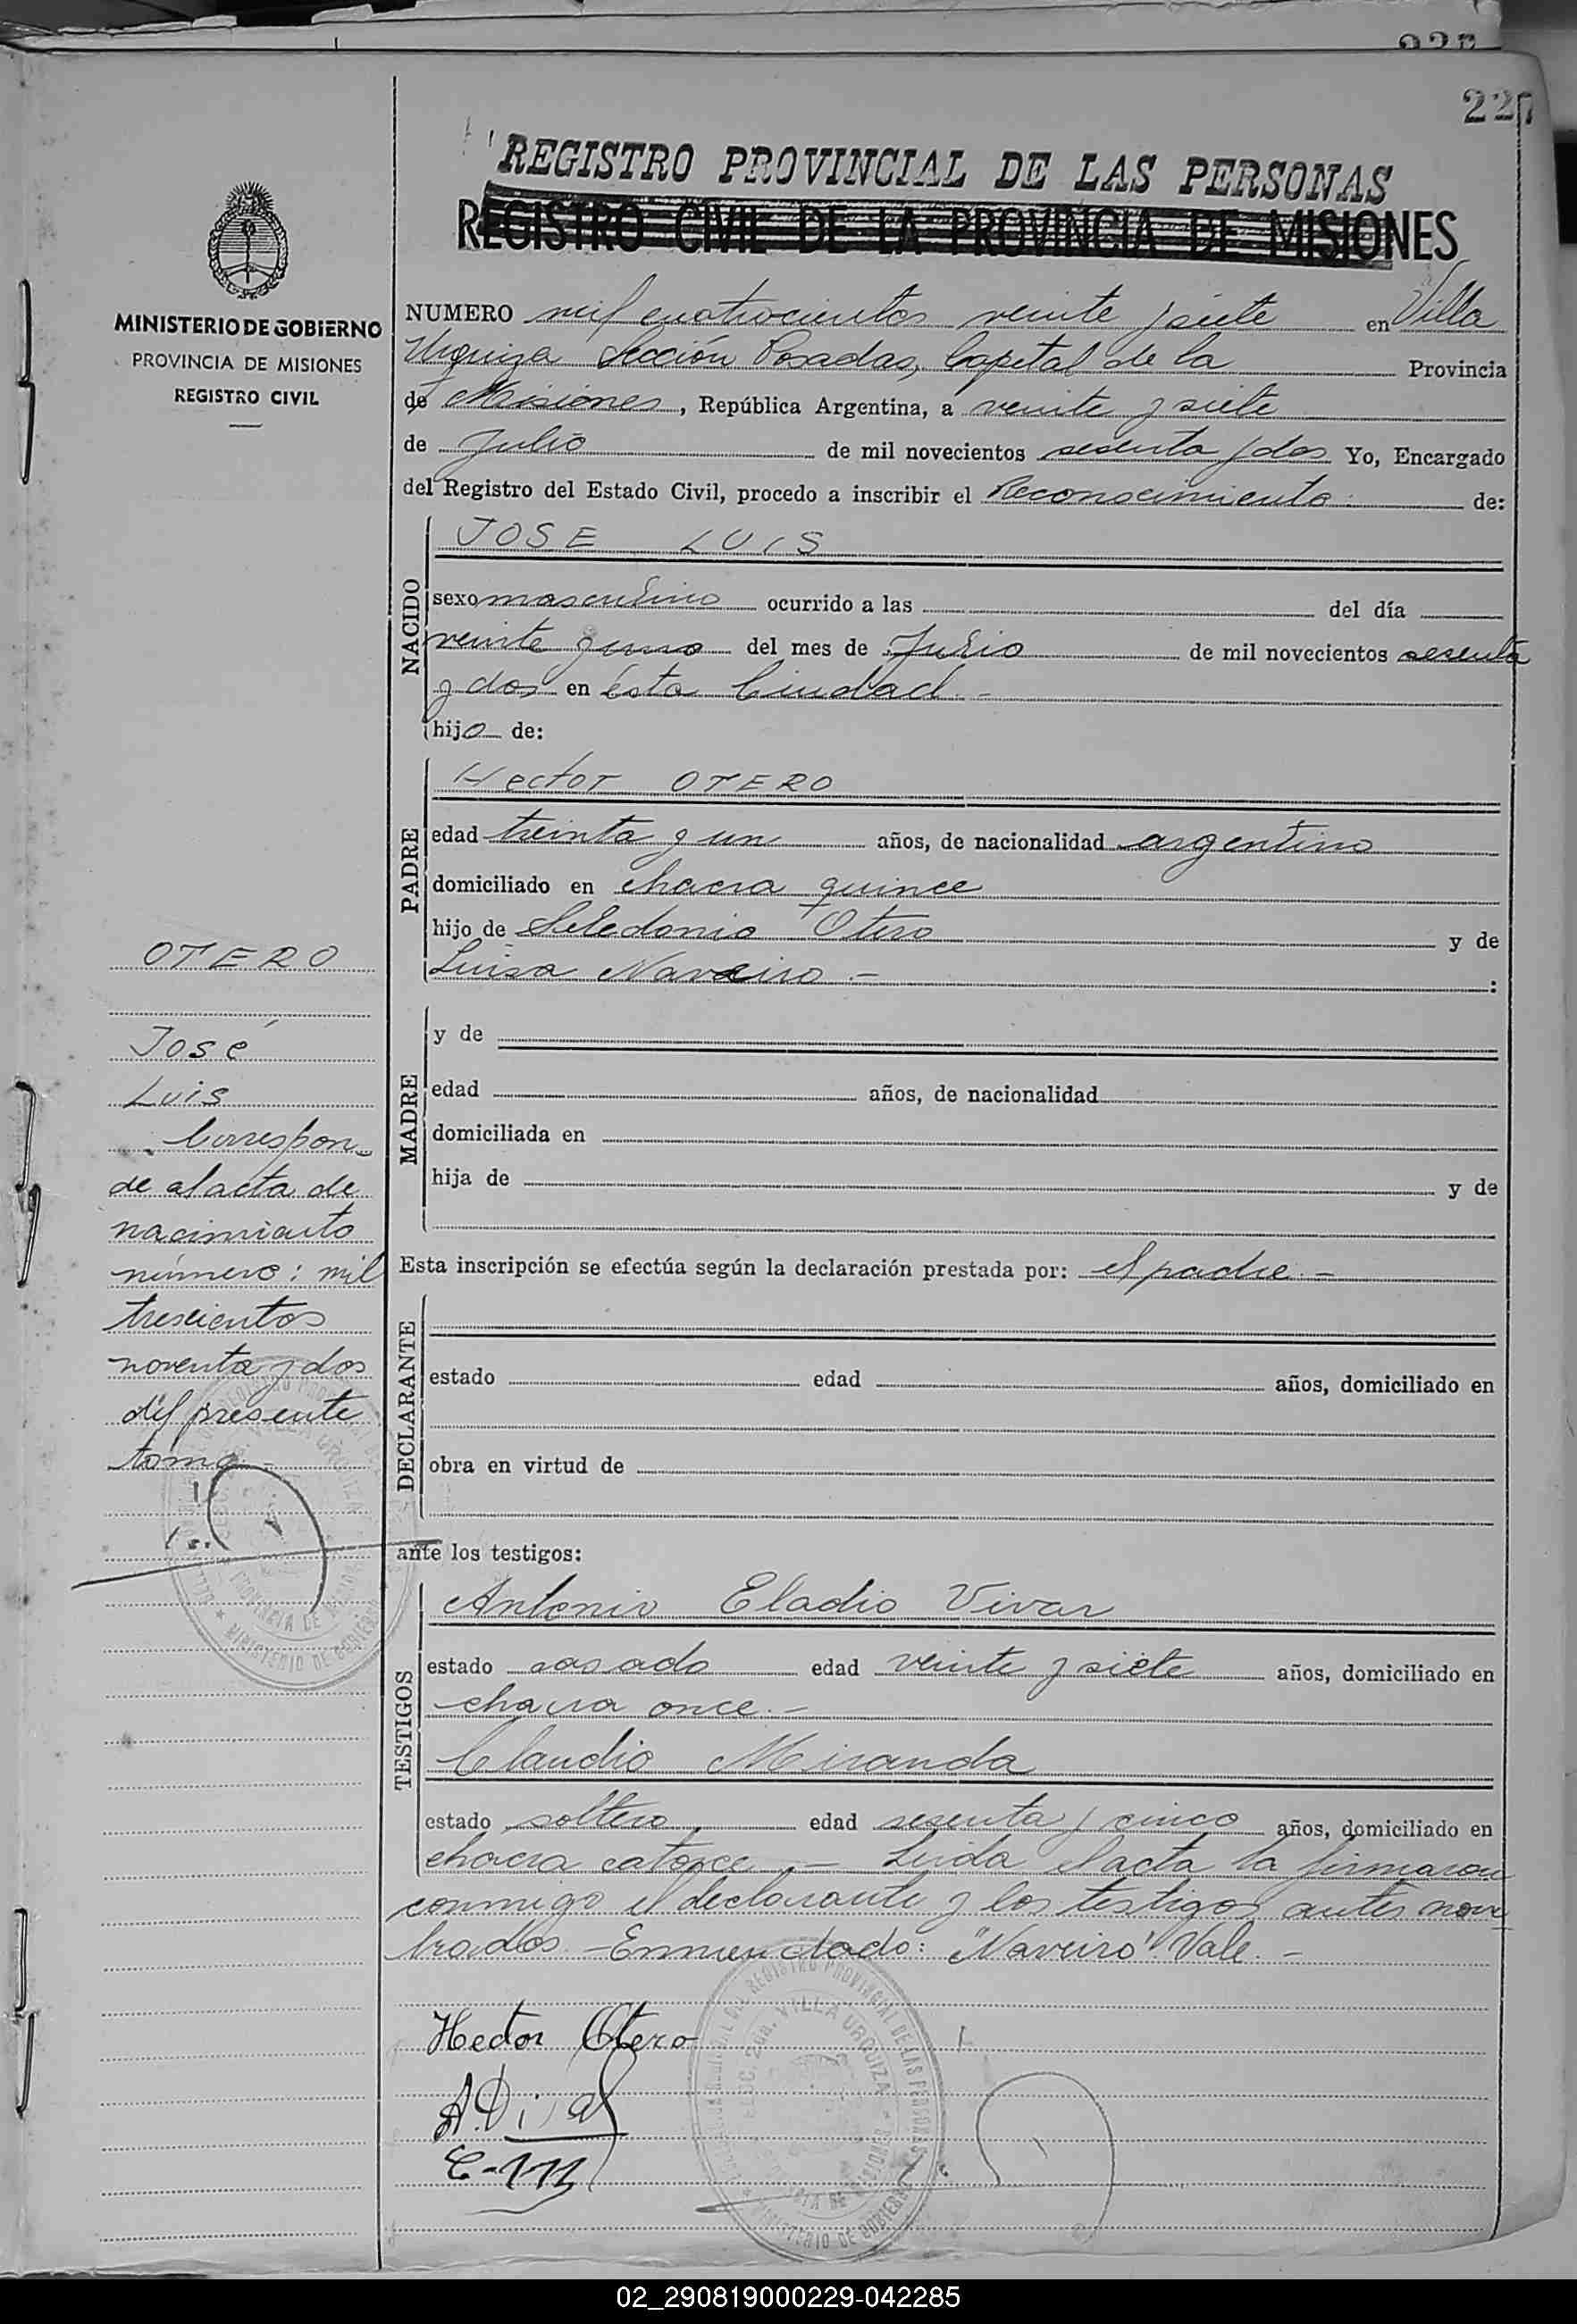 227
REGISTRO PROVINCIAL DE LAS PERSONAS
REGISTRO CIVIL DE LA PROVINCIA DE MISIONES
MINISTERIO DE GOBIERNO
PROVINCIA DE MISIONES
REGISTRO CIVIL
NUMERO mil cuatrocientos veinte y siete en Villa
Urquiza Sección Posadas, Capital de la Provincia
de Misiones, República Argentina, a veinte y siete
de Julio de mil novecientos sesenta y dos Yo, Encargado
del Registro del Estado Civil, procedo a inscribir el Reconocimiento de:
NACIDO
JOSE LUIS
sexo masculino ocurrido a las del día
veinte y uno del mes de Julio de mil novecientos sesenta
y dos en ésta Ciudad.-
hijo de:
PADRE
Hector OTERO
edad treinta y un años, de nacionalidad argentino
domiciliado en chacra quince
hijo de Seledonio Otero y de
Luisa Naveiro.-:
MADRE
y de
edad años, de nacionalidad
domiciliada en
hija de y de
Esta inscripción se efectúa según la declaración prestada por: el padre.-
DECLARANTE
estado edad años, domiciliado en
obra en virtud de
ante los testigos:
TESTIGOS
Antonio Eladio Vivar
estado casado edad veinte y siete años, domiciliado en
chacra once.-
Claudio Miranda
estado soltero edad sesenta y cinco años, domiciliado en
chacra catorce.- Leida el acta la firmaron
conmigo el declarante y los testigos antes nom
brados.- Enmendado: "Naveiro" Vale.-
Hector Otero
OTERO
José
Luis
Correspon-
de al acta de
nacimiento
número: mil
trescientos
noventa y dos
del presente
tomo.-
VILLA URQUIZA
MINISTERIO DE GOBIERNO
02_290819000229-042285